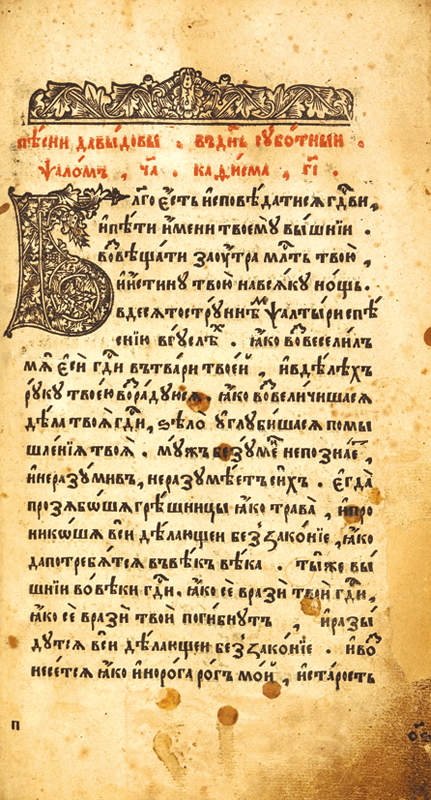 пѣ́сни давы́довы . въд҃нь сꙋбо́тныи .
ѱало́мъ , ч҃а . каѳи́сма , г҃і .
Бл҃го є҆́сть и҆сповѣ́датисѧ гд҃ви ,
и҆пѣ́ти и҆́мени твоемꙋ̀ вы́шнїи .
во́звѣща́ти заꙋ́тра мл҃ть твою̀ ,
и҆и́стинꙋ твою̀ навсѧ́кꙋ но́щь .
вдесѧтострꙋ́ннѣм ѱалты́ри спѣ́
снїю вгꙋ́слѣх . ꙗ҆́ко во́звесели́лъ
мѧ̀ є҆сѝ гд҃и втва́ри твое́й , и҆вдѣ́лѣхъ
рꙋкꙋ̀ твое́ю возра́дꙋюсѧ . ꙗ҆́ко возвели́чишасѧ
дѣла̀ твоѧ̀ гд҃и , ѕѣло̀ ᲂу҆глꙋби́шасѧ помы
шле́нїѧ твоѧ̀ . мꙋ́жъ безꙋ́менъ непозна́ет ,
и҆неразꙋ́мивъ , неразꙋмѣ́етъ си́хъ . є҆гда̀
прозѧбо́ша грѣ́шницы ꙗ҆́ко трава̀ , и҆про
нико́ша всѝ дѣ́лающеи без̾зако́нїе , ꙗ҆́ко
дапотребѧ́тсѧ въвѣ́къ вѣ́ка . ты́же вы́
шнїи во́вѣки гд҃и . ꙗ҆́ко сѐ вразѝ твоѝ гд҃и ,
ꙗ҆́ко сѐ вразѝ твоѝ поги́бнꙋтъ , и҆разы́
дꙋтсѧ всѝ дѣ́лающеи без̾зако́нїе . и҆воз
несе́тсѧ ꙗ҆́ко и҆норо́га ро́гъ мо́й , и҆ста́рость
п